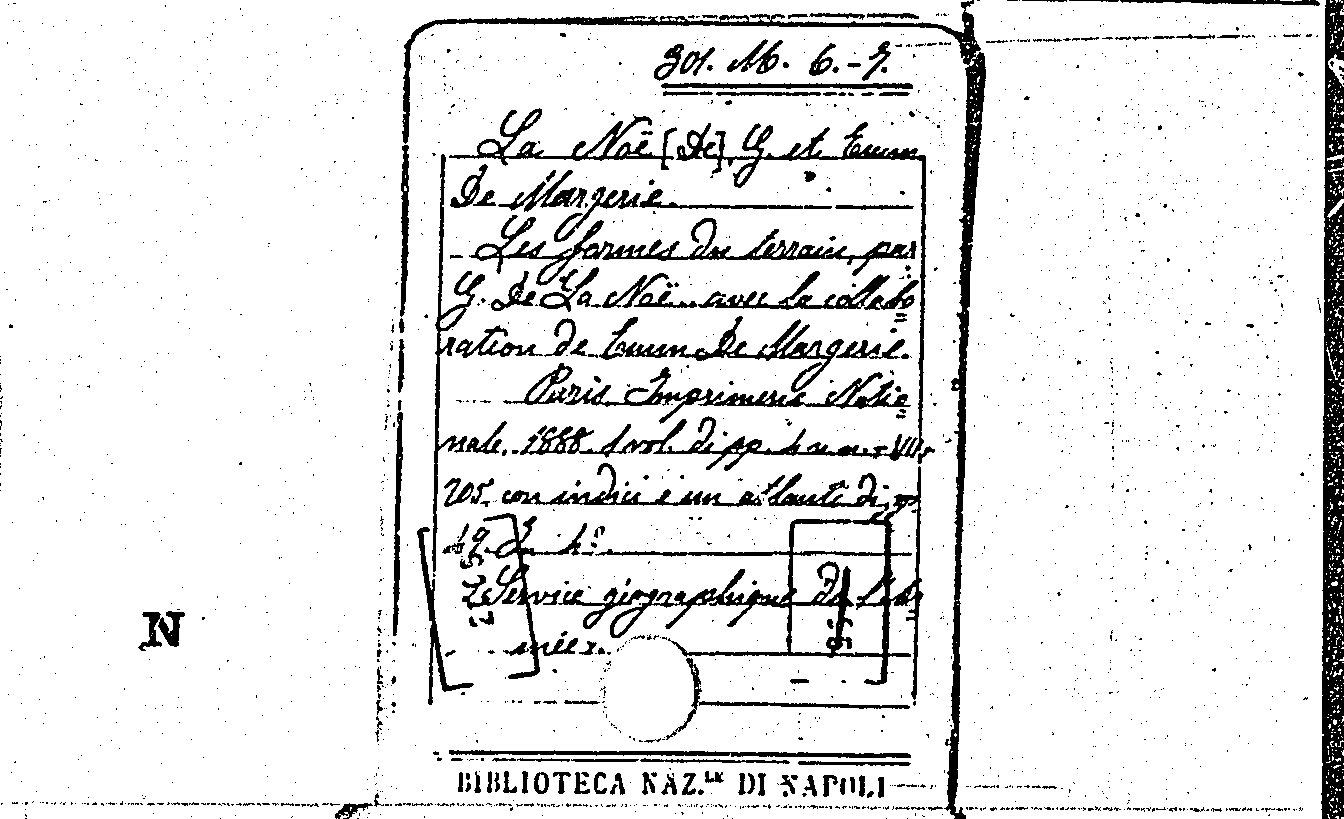 301. M. 6.-7.
La Noë [De], G. et Emm
De Margerie.
Les formes du terrain, par
G. De La Noë avec la collabo
ration de Emm De Margerie.
Paris Imprimerie Natio
nale, 1888. 1 vol. di pp. 4 n.n.-VIII-
205. con indici e un atlante di
49. In 4°.
"Service géographique de l'ar
mée".
N
BIBLIOTECA NAZ.LE DI NAPOLI